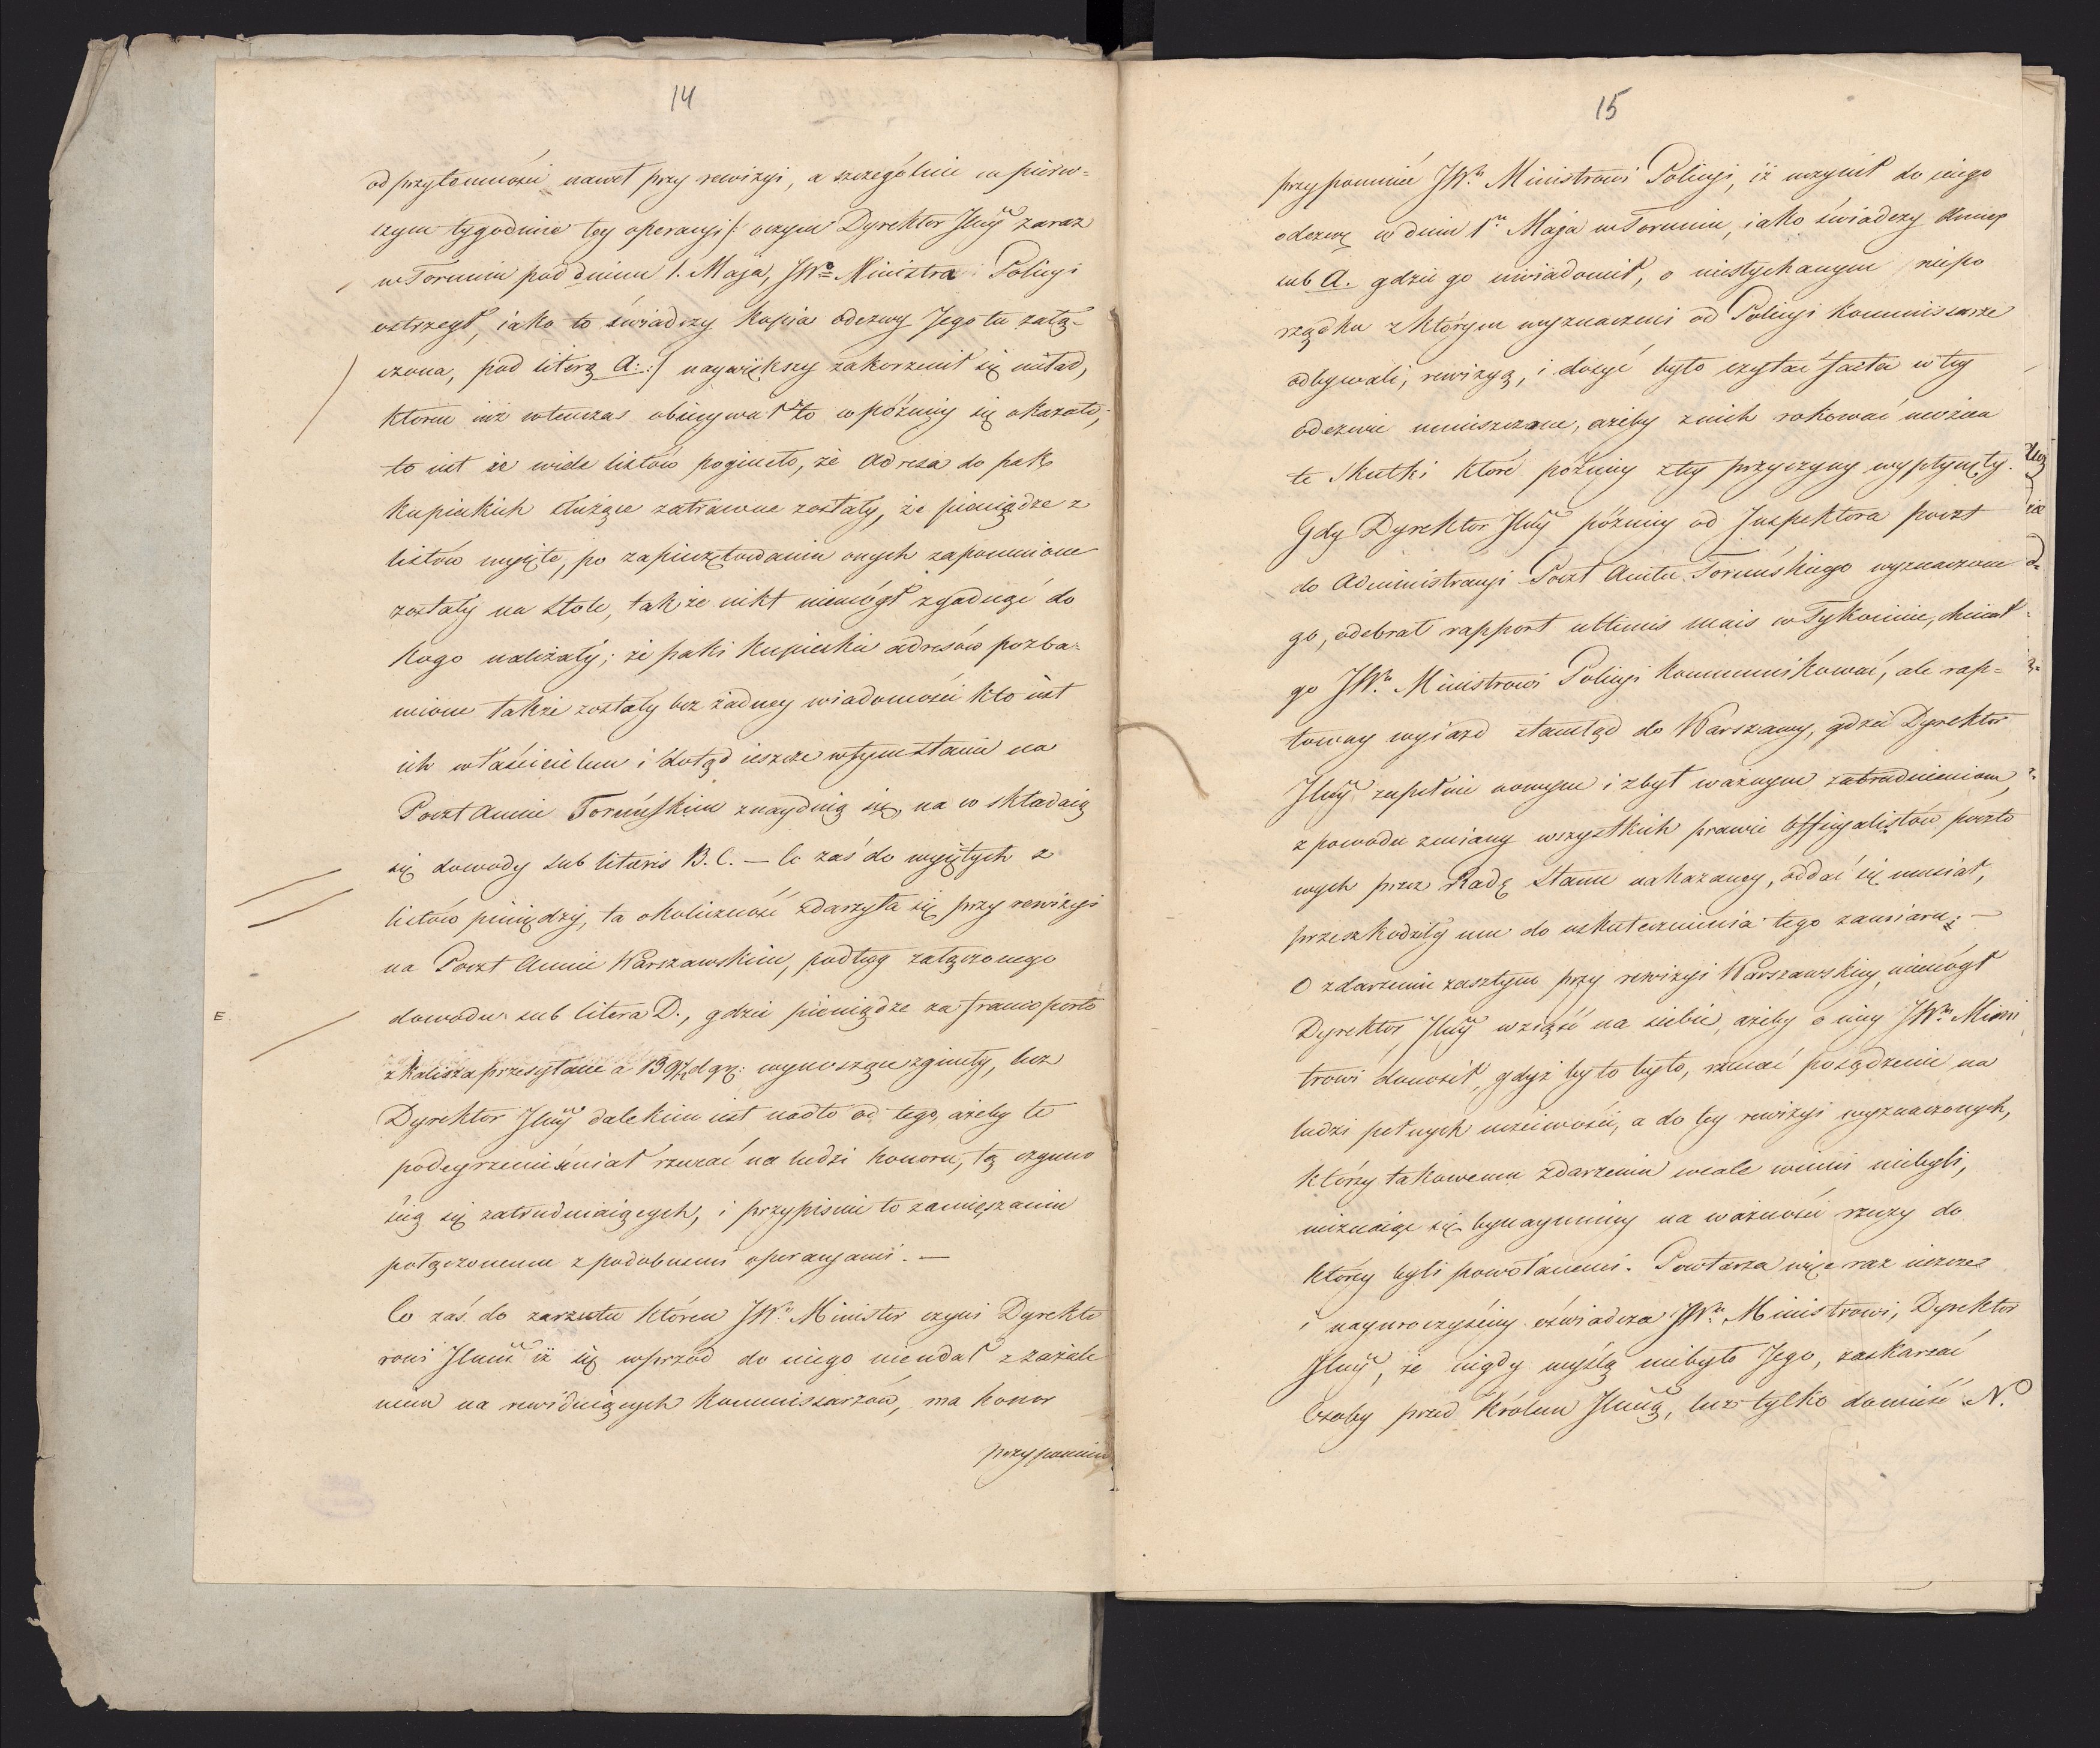 14
od przytomności nawet przy rewizyi, a szczególnie w pierw-
szym tygodniu tey operacyi /: oczym Dyrektor Jlny zaraz
w Toruniu pod dniem 1. Maja, JWo Ministra Policyi
ostrzegł, iako to świadczy Kopia odezwy Jego tu załą-
czona, pod literą A: :/ naywiększy zakorzenił się nieład,
któren iuż wtenczas obiecywał to co późniey się okazało,
to iest że wiele listów poginęło, że Adresa do pak
Kupieckich służące zatracone zostały, że pieniądze z
listów wyięte, po zapieczętowaniu onych zapomnione
zostały na stole, tak że nikt niemógł zgadnąć do
kogo należały; że paki Kupieckie adresów pozba-
wione także zostały bez żadney wiadomości kto iest
ich właścicielem i dotąd ieszcze w tym stanie na
Poczt Amcie Toruńskim znayduią się, na co składaią
się dowody sub literis B. C. — Co zaś do wyiętych z
listów pieniędzy, ta okoliczność zdarzyła się przy rewizyi
na Poczt Amcie Warszawskim, podług załączonego
E.
dowodu sub litera D., gdzie pieniądze za franco porto
z Kalisza przesyłane a 13 wynoszące zginęły, lecz
Dyrektor Jlny dalekim iest nadto od tego, ażeby te
podeyrzenie miał rzucać na ludzi honoru, tą czynno
ścią się zatrudniaiących, i przypisuie to zamięszaniu
połączonemu z podobnemi operacyami. —
Co zaś do zarzutu któren JWy Minister czyni Dyrekto
rowi Jlnemu iż się wprzód do niego nieudał z zażale
niem na rewiduiących Kommissarzów, ma honor
przypomnieć
15
przypomnieć JWu Ministrowi Policyi, iż uczynił do niego
odezwę w dniu 1o Maja w Toruniu, iako świadczy Annex
sub A. gdzie go uwiadomił, o niesłychanym niepo
rządku z którym wyznaczeni od Policyi Kommissarze
odbywali, rewizyą, i dosyć było czytać facta w tey
odezwie umieszczone, ażeby z nich rokować można
te Skutki które późniey z tey przyczyny wypłynęły.
Gdy Dyrektor Jlny późniey od Inspektora poczt
do Administracyi Poczt Amtu Toruńskiego wyznaczone
go, odebrał rapport ultimis mais w Tykocinie, chciał
go JWu Ministrowi Policyi Kommunikować, ale rap-
towny wyiazd ztamtąd do Warszawy, gdzie Dyrektor
Jlny zupełnie nowym i zbyt ważnym zatrudnieniom,
z powodu zmiany wszystkich prawie Officyalistów poczto
wych przez Radę Stanu nakazaney, oddać się musiał,
przeszkodziły mu do uskutecznienia tego zamiaru; —
O zdarzeniu zaszłym przy rewizyi Warszawskiey, niemógł
Dyrektor Jlny wziąść na siebie, ażeby o niey JWu Minis
trowi donosił, gdyż by to było, rzucać posądzenie na
ludzi pełnych uczciwości, a do tey rewizyi wyznaczonych,
którzy takowemu zdarzeniu wcale winni niebyli,
nieznaiąc się bynaymniey na ważności rzeczy do
którey byli powołanemi. Powtarza więc raz ieszcze
i nayuroczyściey oświadcza JWu Ministrowi, Dyrektor
Jlny, że nigdy myślą niebyło Jego, zaskarżać
Osoby przed Królem Jmcią, lecz tylko donieść N.